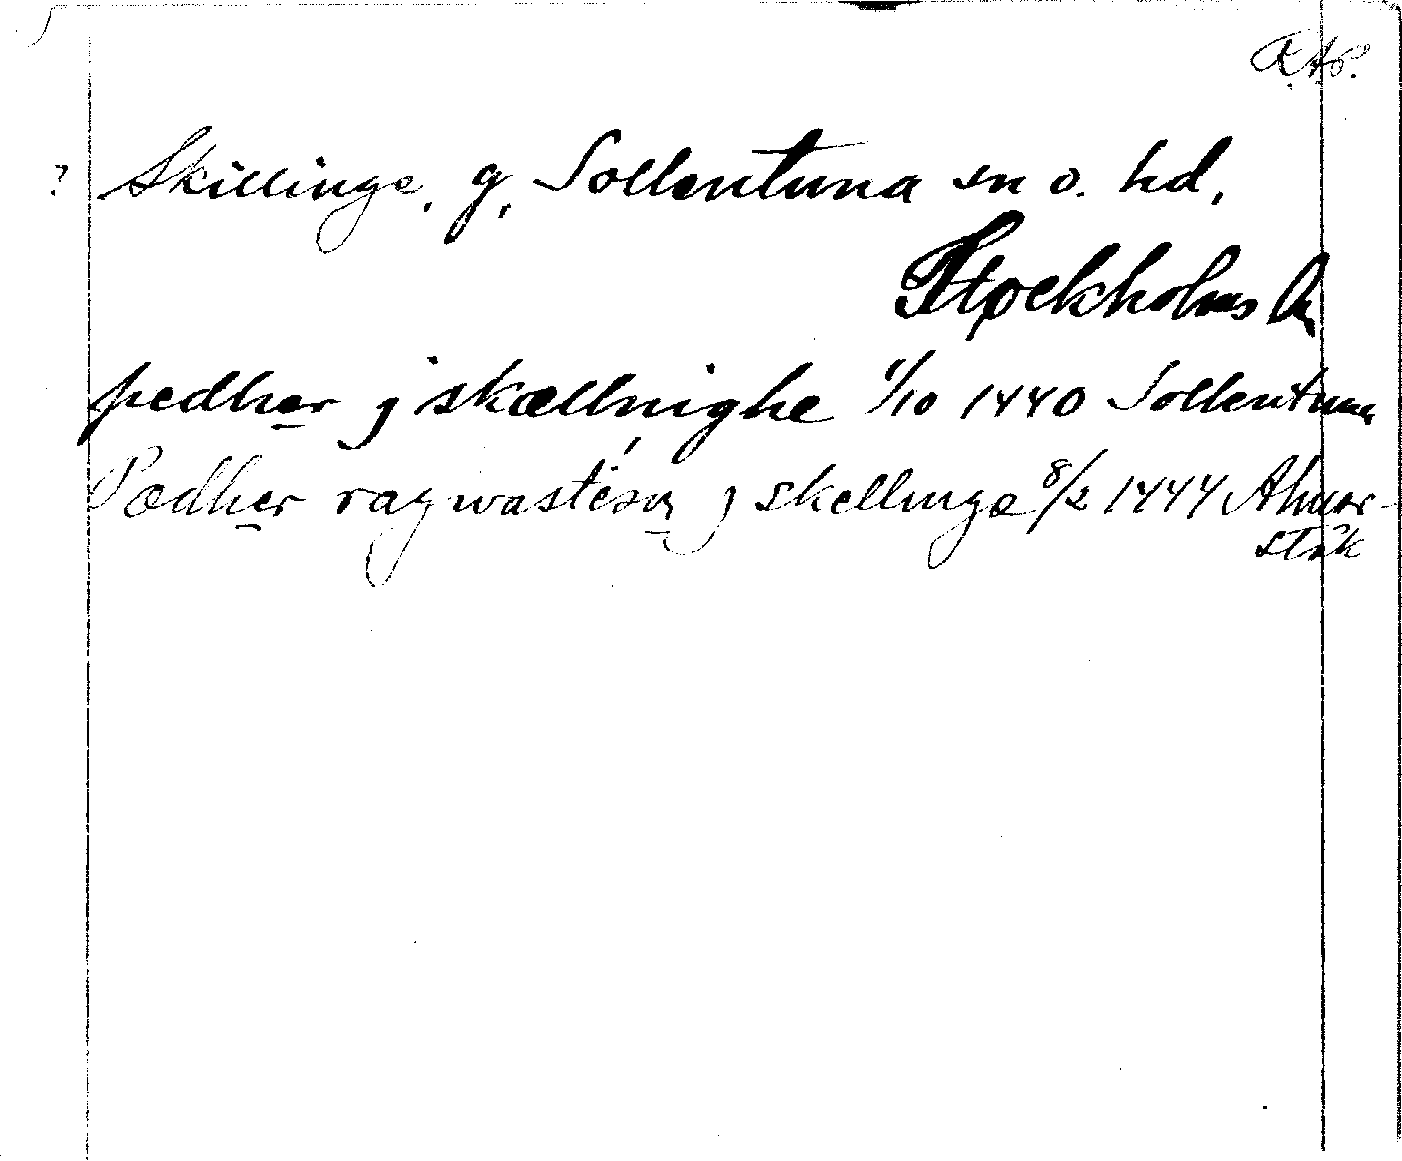 RAp.
? Skillinge, g, Sollentuna sn o. hd,
Stockholms
pedher j skællnighe 1/10 1440 Sollentuna
Pædher ragwasteson j skellinge 8/2 1444
stäk